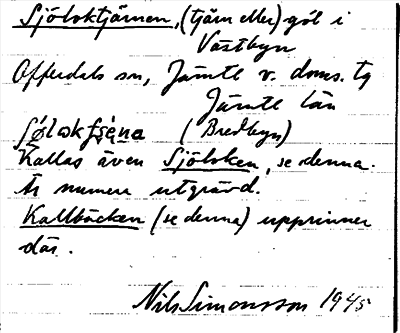 Sjöloktjärnen, (tjärn eller) göl i
Västbyn
Offerdals sn, Jämtl v. doms. tg
Jämtl län
(Bredbyn)
Kallas även Sjöloken, se denna.
Är numera utgrävd.
Kallbäcken (se denna) upprinner
där.
Nils Simonsson 1945